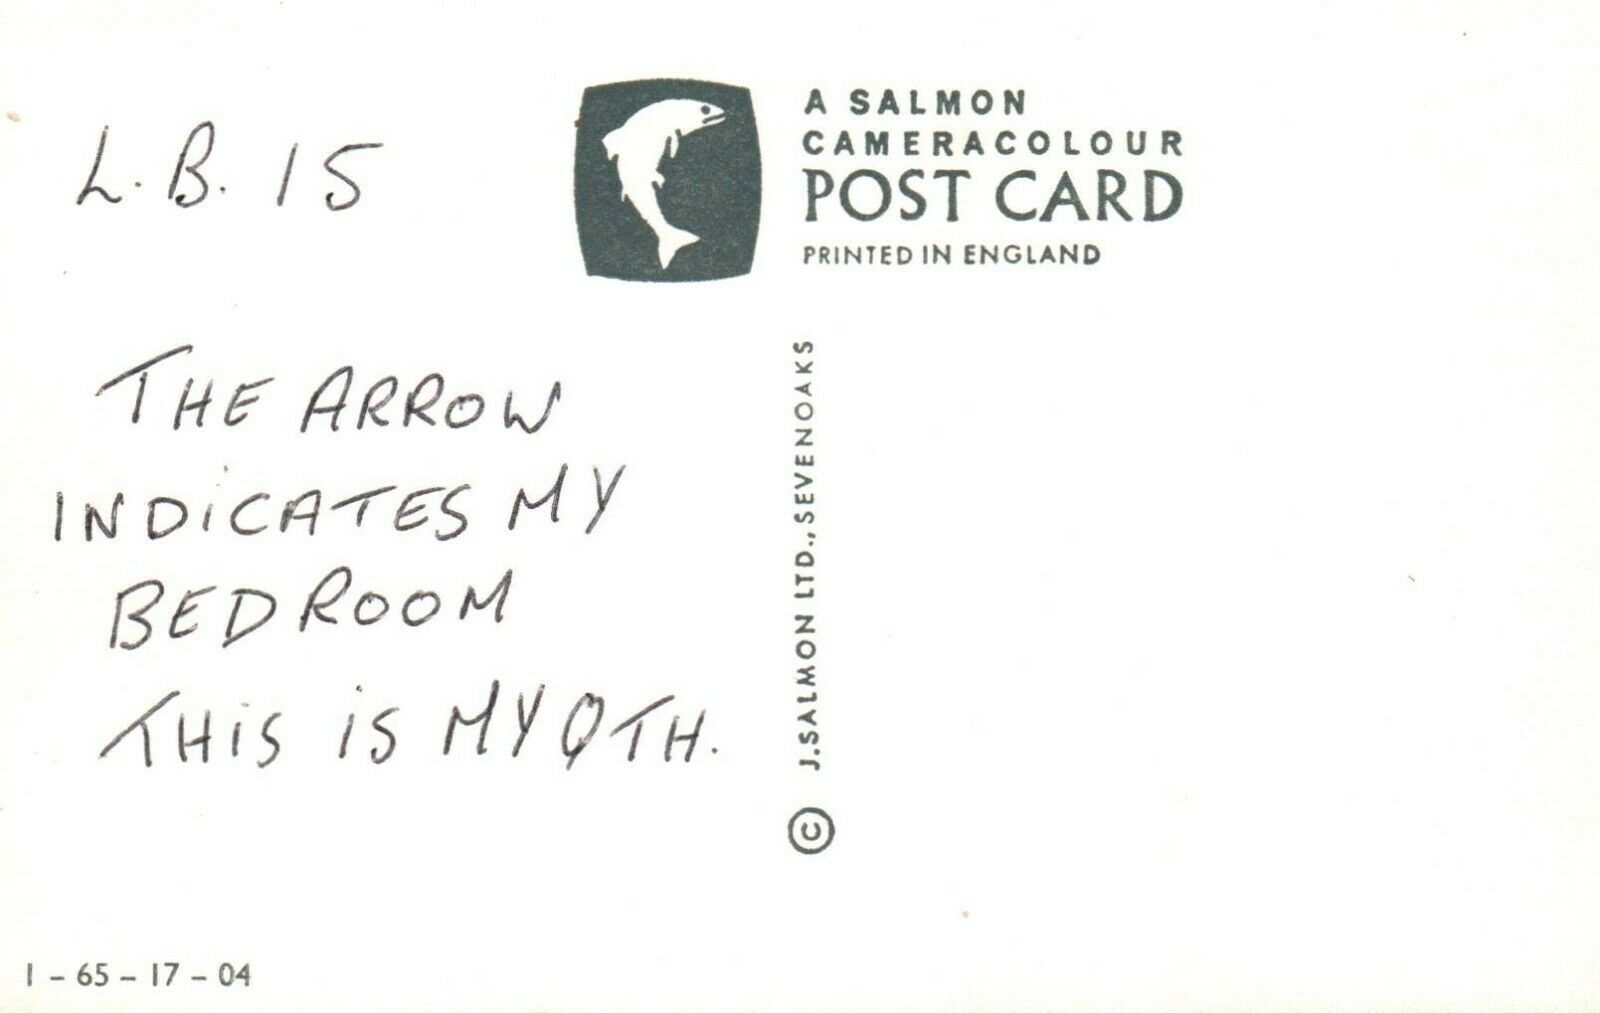 L.B. 15
A SALMON
CAMERACOLOUR
POST CARD
PRINTED IN ENGLAND
THE ARROW
INDICATES MY
BEDROOM
THIS IS MY QTH.
© J.SALMON LTD., SEVENOAKS
1 - 65 - 17 - 04